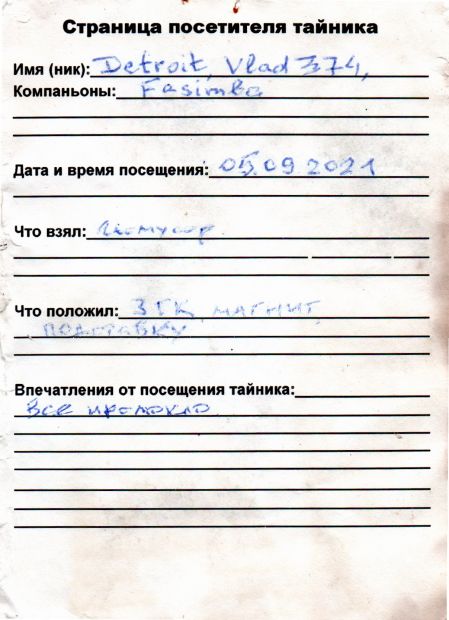 Страница посетителя тайника
Имя (ник): Detroit, Vlad 374,
Компаньоны: Fasimba
Дата и время посещения: 05.09 2021
Что взял:
Что положил: 3 ГК, магнит,
подставку
Впечатления от посещения тайника:
Все промокло